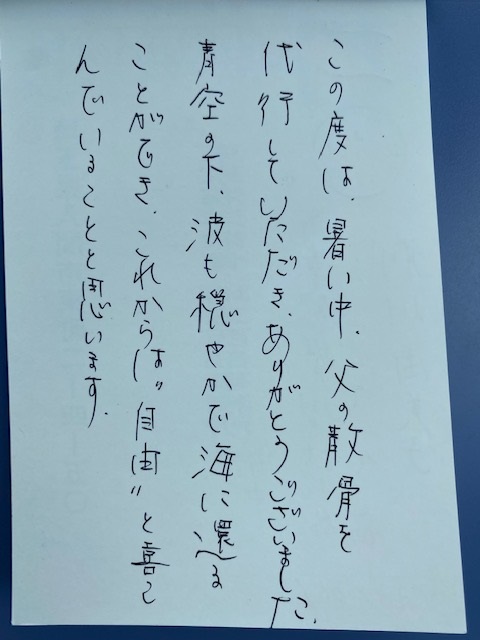 この度は、暑い中、父の散骨を
代行していただき、ありがとうございました。
青空の下、波も穏やかで海に還る
ことができ、これからは〝自由〟と喜こ
んでいることと思います。